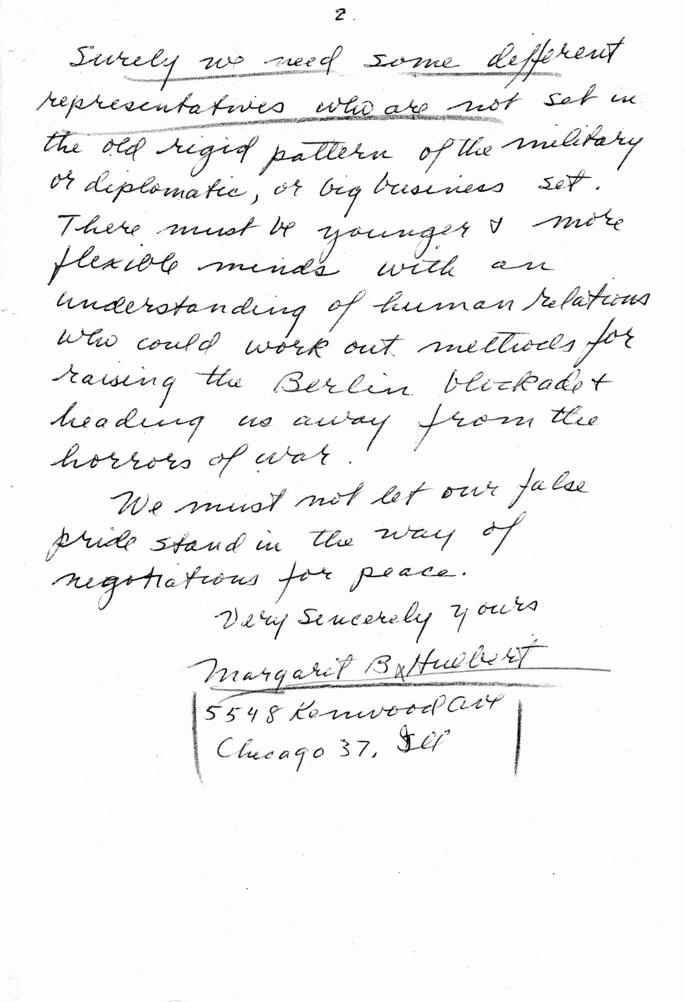 2.
Surely we need some different
representatives who are not set in
the old rigid pattern of the military
or diplomatic, or big business set.
There must be younger & more
flexible minds with an
understanding of human relations
who could work out methods for
raising the Berlin blockade &
heading us away from the
horrors of war.
We must not let our false
pride stand in the way of
negotiations for peace.
Very Sincerely yours
Margaret B. Hulbert
5548 Kenwood Ave
Chicago 37, Ill